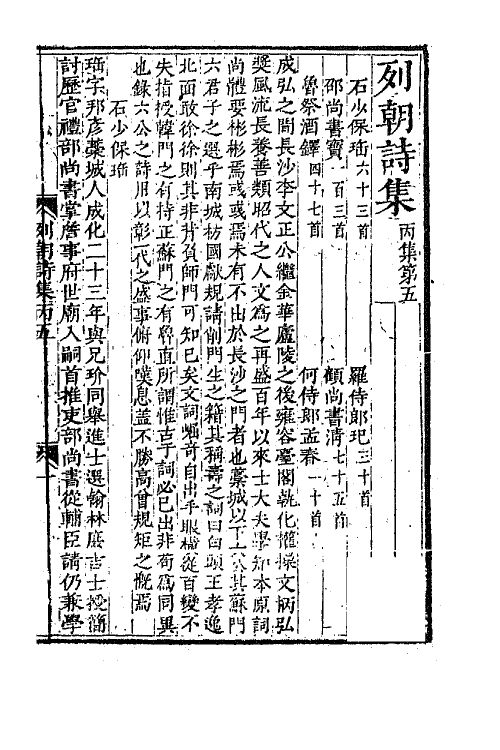 列朝詩集 丙集第五
石少保珤六十三首 羅侍郎玘三十首
邵尚書寶一百三首 顧尚書清七十五首
魯祭酒鐸四十七首 何侍郎孟春一十首
成弘之間長沙李文正公繼金華廬陵之後雍容臺閣執化權操文柄弘
奬風流長養善類昭代之人文為之再盛百年以來士大夫學知本原詞
尚體要彬彬焉彧彧焉未有不出於長沙之門者也藁城以下六公其蘇門
六君子之選乎南城枋國獻規請削門生之籍其稱壽之詞曰白頭王孝逸
北面敢徐徐則其非背負師門可知已矣文詞噉奇自出手眼橫從百變不
失指授韓門之有持正蘇門之有魯直所謂惟古于詞必已出非苟為同異
也錄六公之詩用以彰一代之盛事俯仰嘆息蓋不勝高曾規矩之慨焉
石少保珤
珤字邦彦藁城人成化二十三年與兄玠同舉進士選翰林庶吉士授簡
討歷官禮部尚書掌詹事府世廟入嗣首推吏部尚書從輔臣請仍兼學
列朝詩集丙五
一